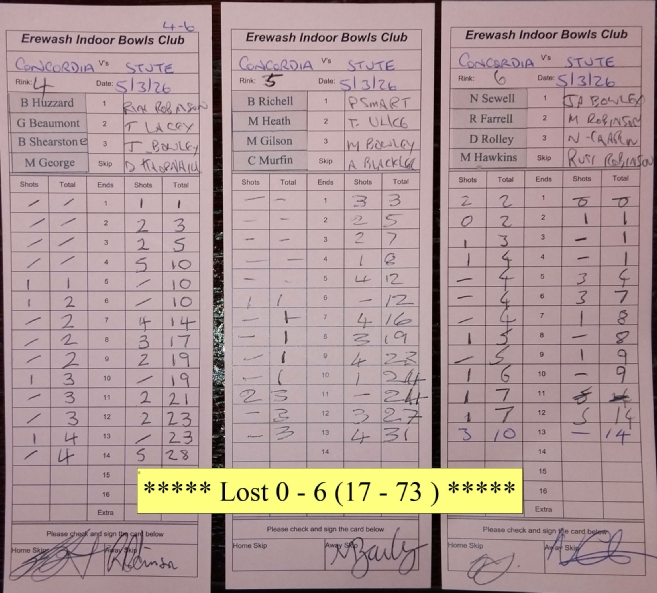 4-6
Erewash Indoor Bowls Club
CONCORDIA V's STUTE
Rink: 4 Date: 5/3/26
B Huzzard 1 ROBINSON
G Beaumont 2 T LACEY
B Shearstone 3 J BOWLEY
M George Skip D
Shots Total Ends Shots Total
/ / 1 1 1
/ / 2 2 3
/ / 3 2 5
/ / 4 5 10
1 1 5 / 10
1 2 6 / 10
/ 2 7 4 14
/ 2 8 3 17
/ 2 9 2 19
1 3 10 / 19
- 3 11 2 21
/ 3 12 2 23
1 4 13 / 23
- 4 14 5 28
15
16
Extra
Please check and sign the card below
Home Skip Away Skip
Erewash Indoor Bowls Club
CONCORDIA V's STUTE
Rink: 5 Date: 5/3/26
B Richell 1 P SMART
M Heath 2
M Gilson 3 M BOWLEY
C Murfin Skip A
Shots Total Ends Shots Total
- - 1 3 3
- - 2 2 5
- - 3 2 7
- - 4 1 8
- - 5 4 12
1 1 6 - 12
- 1 7 4 16
- 1 8 3 19
- 1 9 4 23
- 1 10 1 24
2 3 11 - 24
- 3 12 3 27
- 3 13 4 31
14
Extra
Please check and sign the card below
Home Skip Away Skip
Erewash Indoor Bowls Club
CONCORDIA V's STUTE
Rink: 6 Date: 5/3/26
N Sewell 1 BOWLEY
R Farrell 2 M ROBINSON
D Rolley 3
M Hawkins Skip RUSS ROBINSON
Shots Total Ends Shots Total
2 2 1 0 0
0 2 2 1 1
1 3 3 - 1
1 4 4 - 1
- 4 5 3 4
- 4 6 3 7
- 4 7 1 8
1 5 8 - 8
- 5 9 1 9
1 6 10 - 9
1 7 11
1 7 12 5 14
3 10 13 - 14
14
15
16
Extra
Please check and sign the card below
Home Skip Away Skip
***** Lost 0 - 6 (17 - 73 ) *****